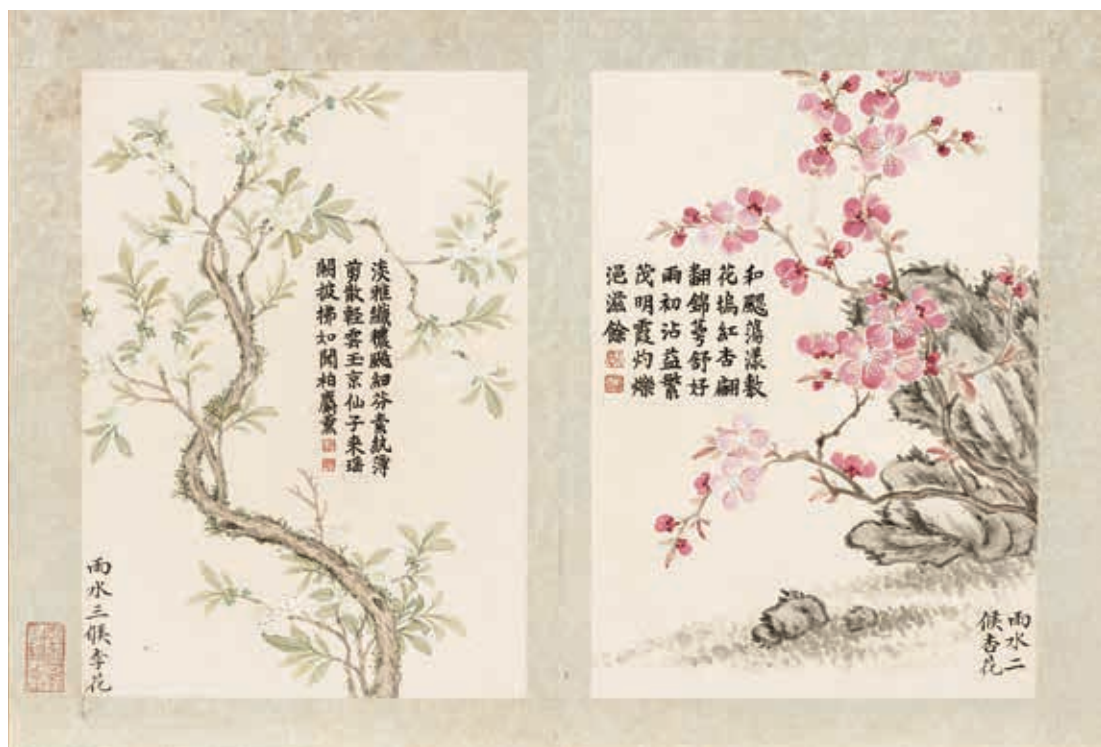 和颸蕩漾數
花塢紅杏翩
翻錦萼舒好
雨初沾益繁
茂明霞灼爍
浥滋餘
雨水二
候杏花
淡雅纖穠颺細芬素紈薄
剪散輕雲玉京仙子来瑤
闕披拂如聞柏麝薰
雨水三候李花